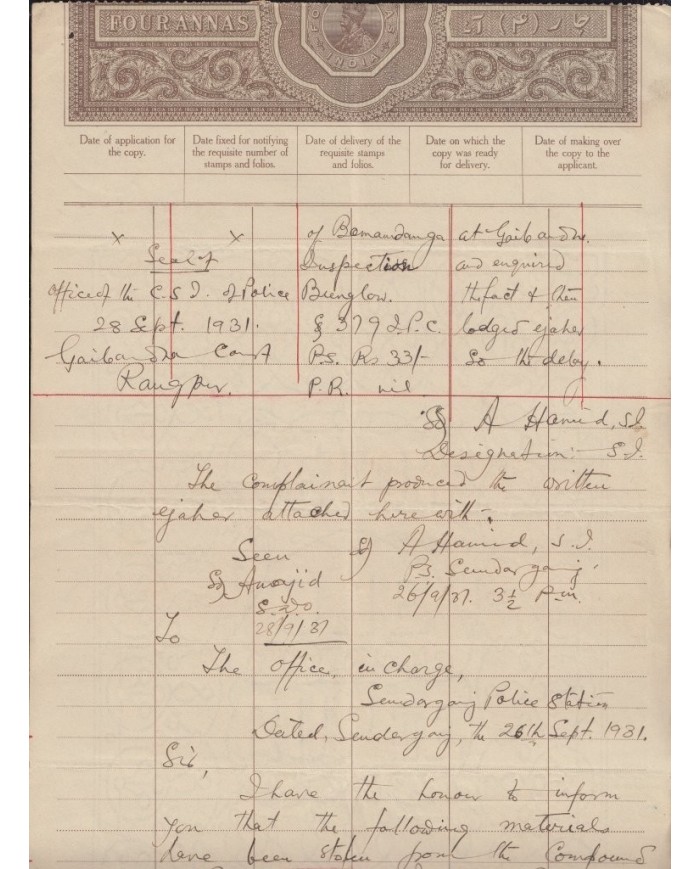 FOUR ANNAS
INDIA
چار (۴) آنہ
Date of application for the copy.
Date fixed for notifying the requisite number of stamps and folios.
Date of delivery of the requisite stamps and folios.
Date on which the copy was ready for delivery.
Date of making over the copy to the applicant.
x x
Seal of
Office of the C.S.I. of Police
28 Sept. 1931.
Gaibandha Court
Rangpur.
of Bamandanga
Inspection
Bunglow.
§ 379 I.P.C.
P.S. Rs 33/-
P.R. nil
at Gaibandha.
and enquired
the fact & then
lodged ejaher
So the delay.
Sd/ A Hamid, S.I.
Designation:- S.I.
The complainant produced the written
ejaher attached herewith.
Seen
Sd/
S.D.O.
28/9/31
Sd/ A Hamid, S.I.
P.S. Sundarganj
26/9/31. 3½ P.m.
To
The office, in charge,
Sundarganj Police Station
Dated, Sundarganj, the 26th Sept. 1931.
Sir,
I have the honour to inform
you that the following materials
have been stolen from the Compound